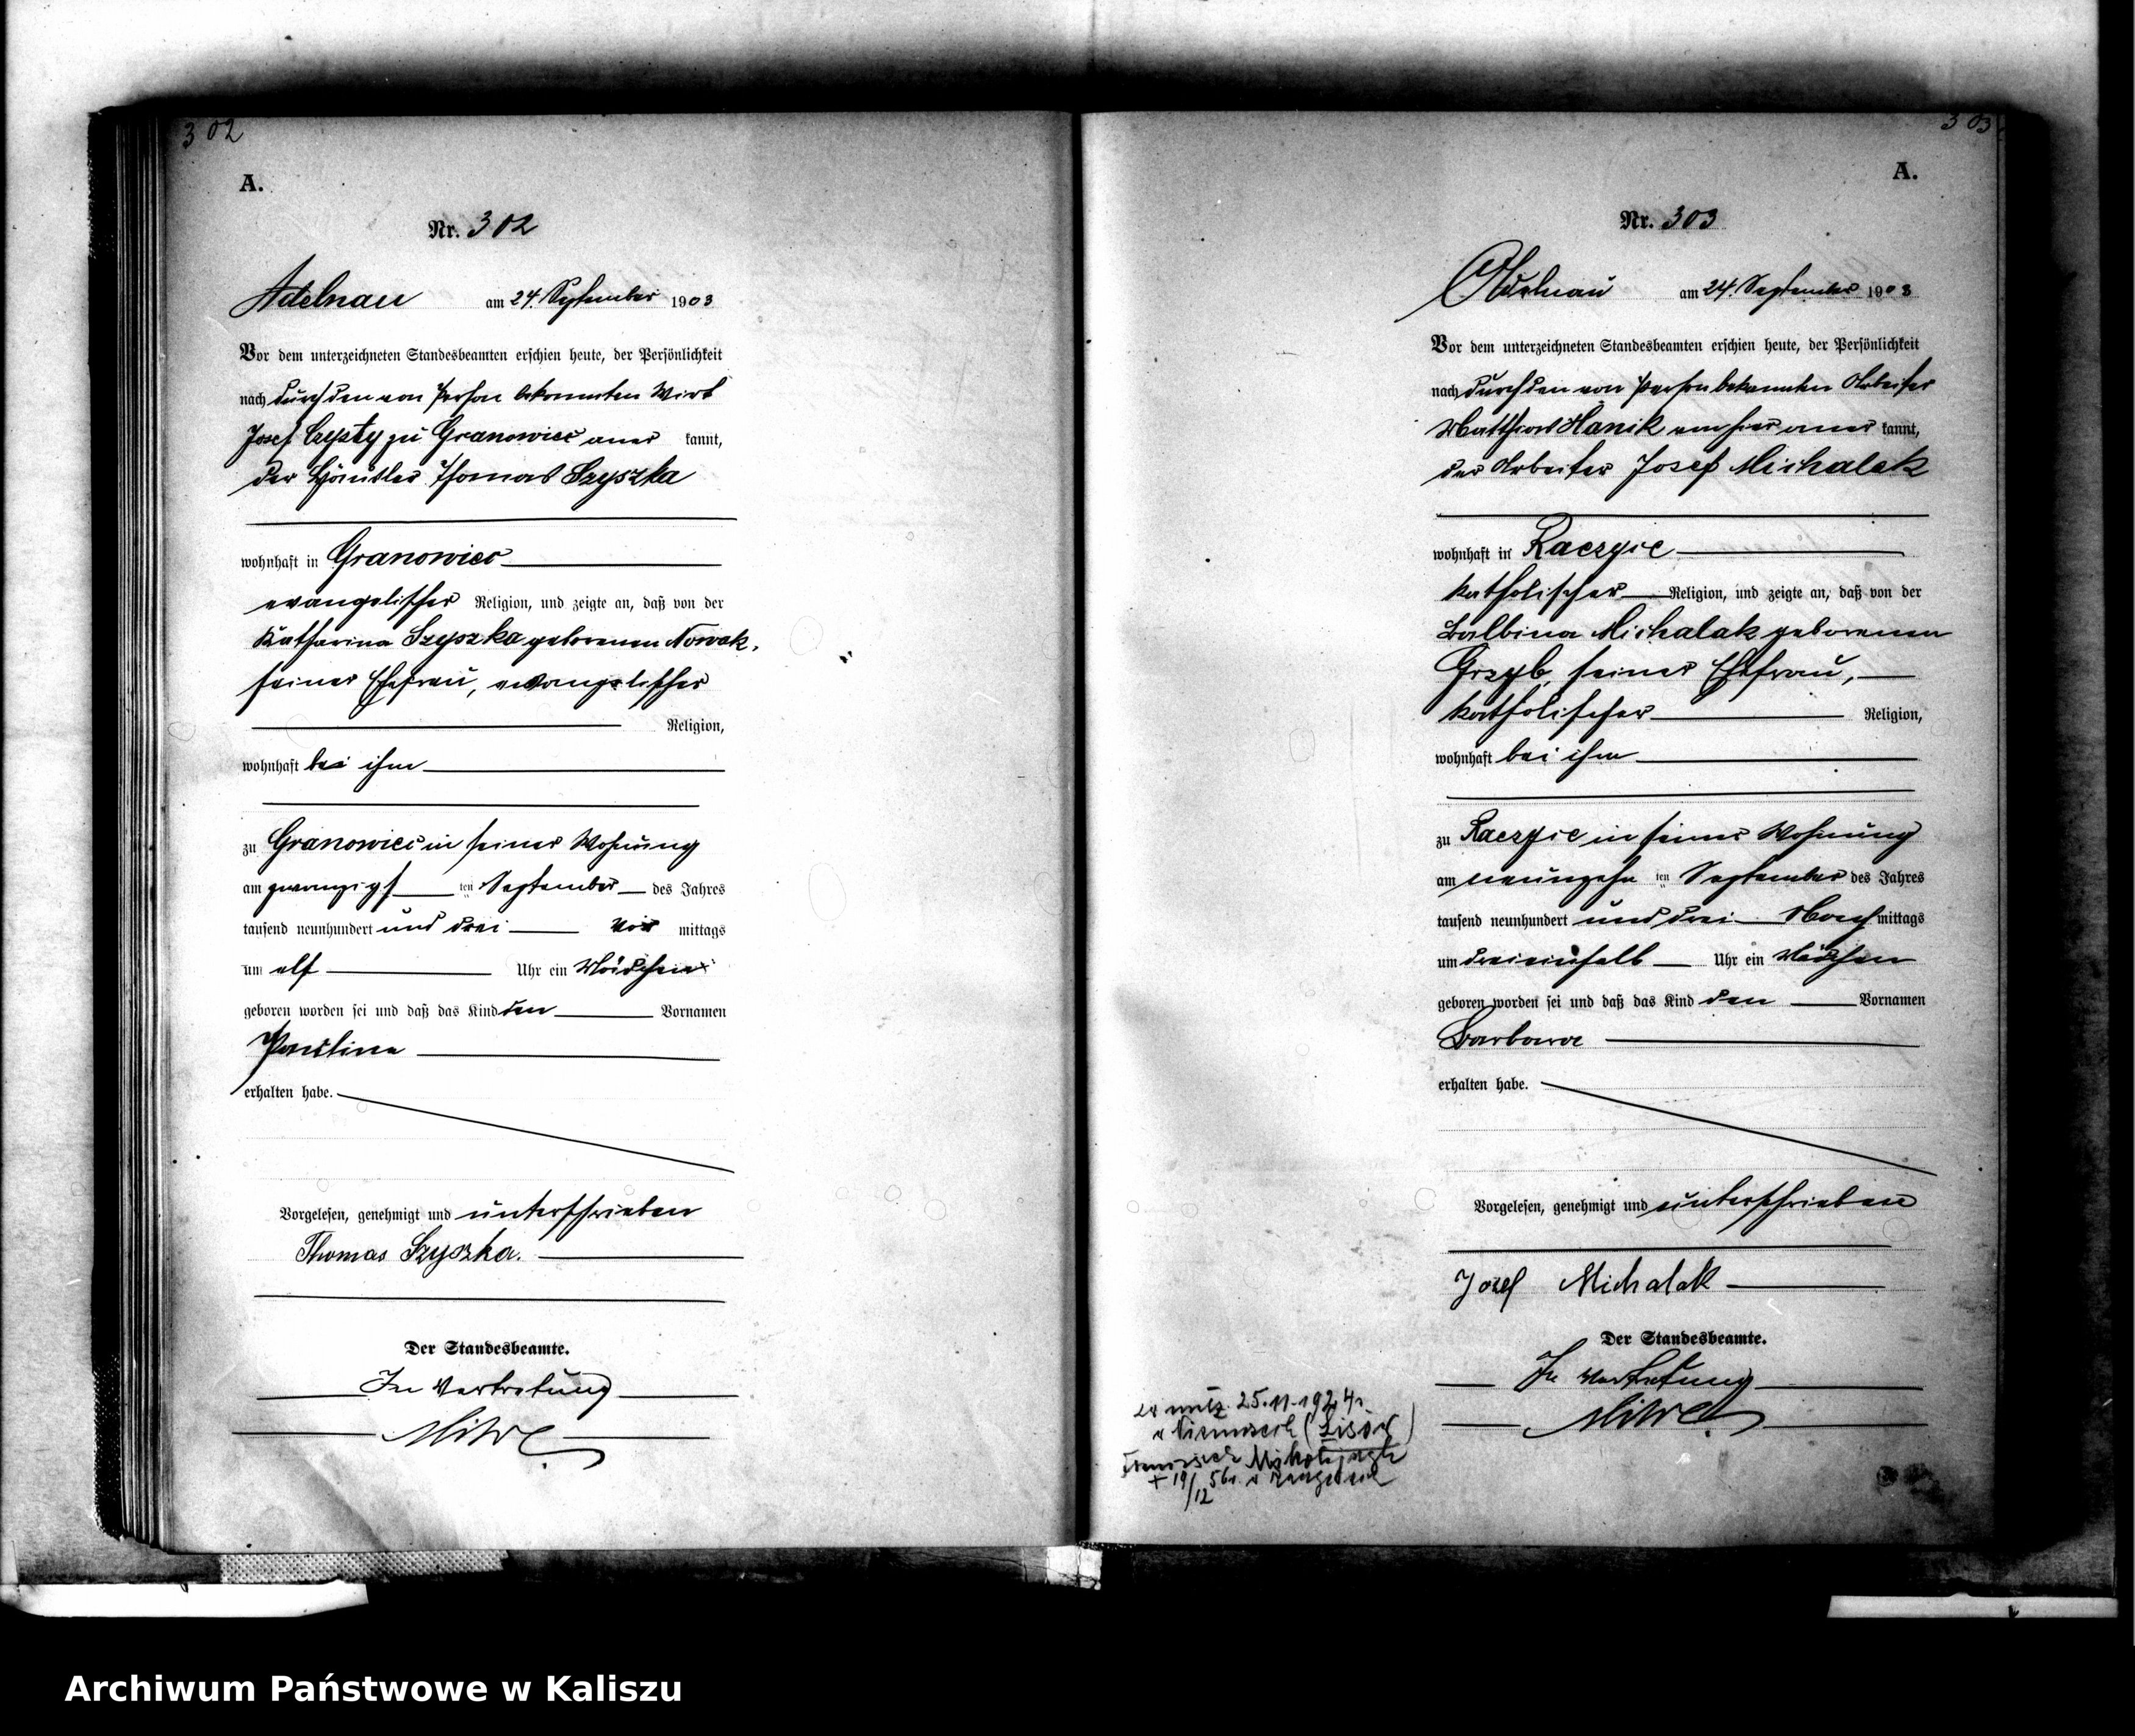 302
A.
Nr. 302
Adelnau am 24. September 1903
Vor dem unterzeichneten Standesbeamten erschien heute, der Persönlichkeit
nach durch den von Person bekannten Wirt
Josef Czysty zu Granowiec aner kannt,
der Häusler Thomas Szyszka
wohnhaft in Granowiec
evangelischer Religion, und zeigte an, daß von der
Katharina Szyszka geborenen Nowak,
seiner Ehefrau, evangelischer
Religion,
wohnhaft bei ihm
zu Granowiec in seiner Wohnung
am zwanzigsten September des Jahres
tausend neunhundert und drei Vor mittags
um elf Uhr ein Mädchen
geboren worden sei und daß das Kind den Vornamen
Paulina
erhalten habe.
Vorgelesen, genehmigt und unterschrieben
Thomas Szyszka.
Der Standesbeamte.
In Vertretung
303
A.
Nr. 303
Adelnau am 24. September 1903
Vor dem unterzeichneten Standesbeamten erschien heute, der Persönlichkeit
nach durch den von Person bekannten Arbeiter
Matthias Hanik von hier aner kannt,
der Arbeiter Josef Michalak
wohnhaft in Raczyce
katholischer Religion, und zeigte an, daß von der
Balbina Michalak geborenen
Grzyb, seiner Ehefrau,
katholischer Religion,
wohnhaft bei ihm
zu Raczyce in seiner Wohnung
am neunzehnten September des Jahres
tausend neunhundert und drei Nach mittags
um dreieinhalb Uhr ein Mädchen
geboren worden sei und daß das Kind den Vornamen
Barbara
erhalten habe.
Vorgelesen, genehmigt und unterschrieben
Josef Michalak
Der Standesbeamte.
In Vertretung
25.11.1924r.
+ 19/12 56r.
Archiwum Państwowe w Kaliszu